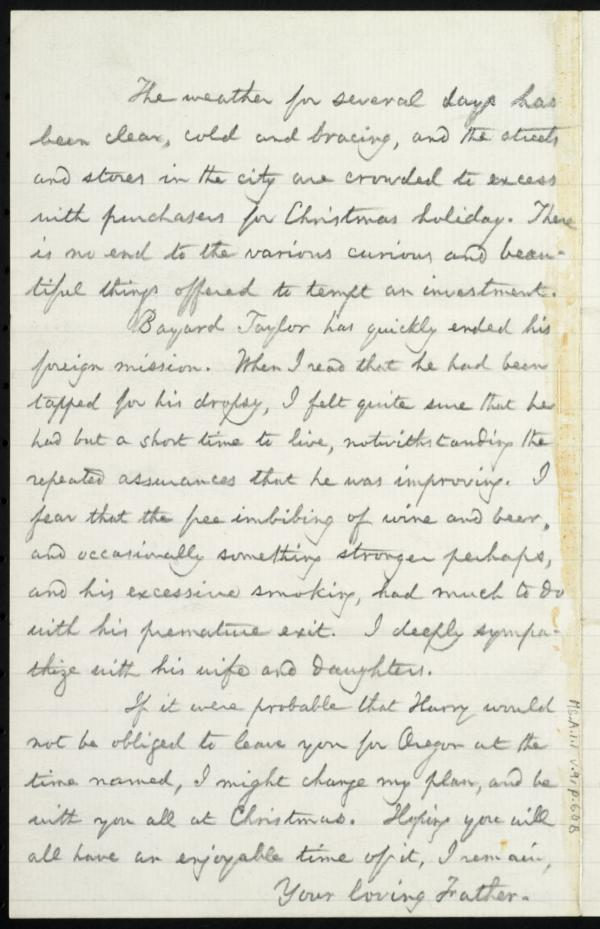 The weather for several days has
been clear, cold and bracing, and the streets
and stores in the city are crowded to excess
with purchasers for Christmas holiday. There
is no end to the various curious and beau-
tiful things offered to tempt an investment.
Bayard Taylor has quickly ended his
foreign mission. When I read that he had been
tapped for his dropsy, I felt quite sure that he
had but a short time to live, notwithstanding the
repeated assurances that he was improving. I
fear that the free imbibing of wine and beer,
and occasionally something stronger perhaps,
and his excessive smoking, had much to do
with his premature exit. I deeply sympa-
thize with his wife and daughters.
If it were probable that Harry would
not be obliged to leave you for Oregon at the
time named, I might change my plan, and be
with you all at Christmas. Hoping you will
all have an enjoyable time of it, I remain,
Your loving Father.
v.9, p.60B